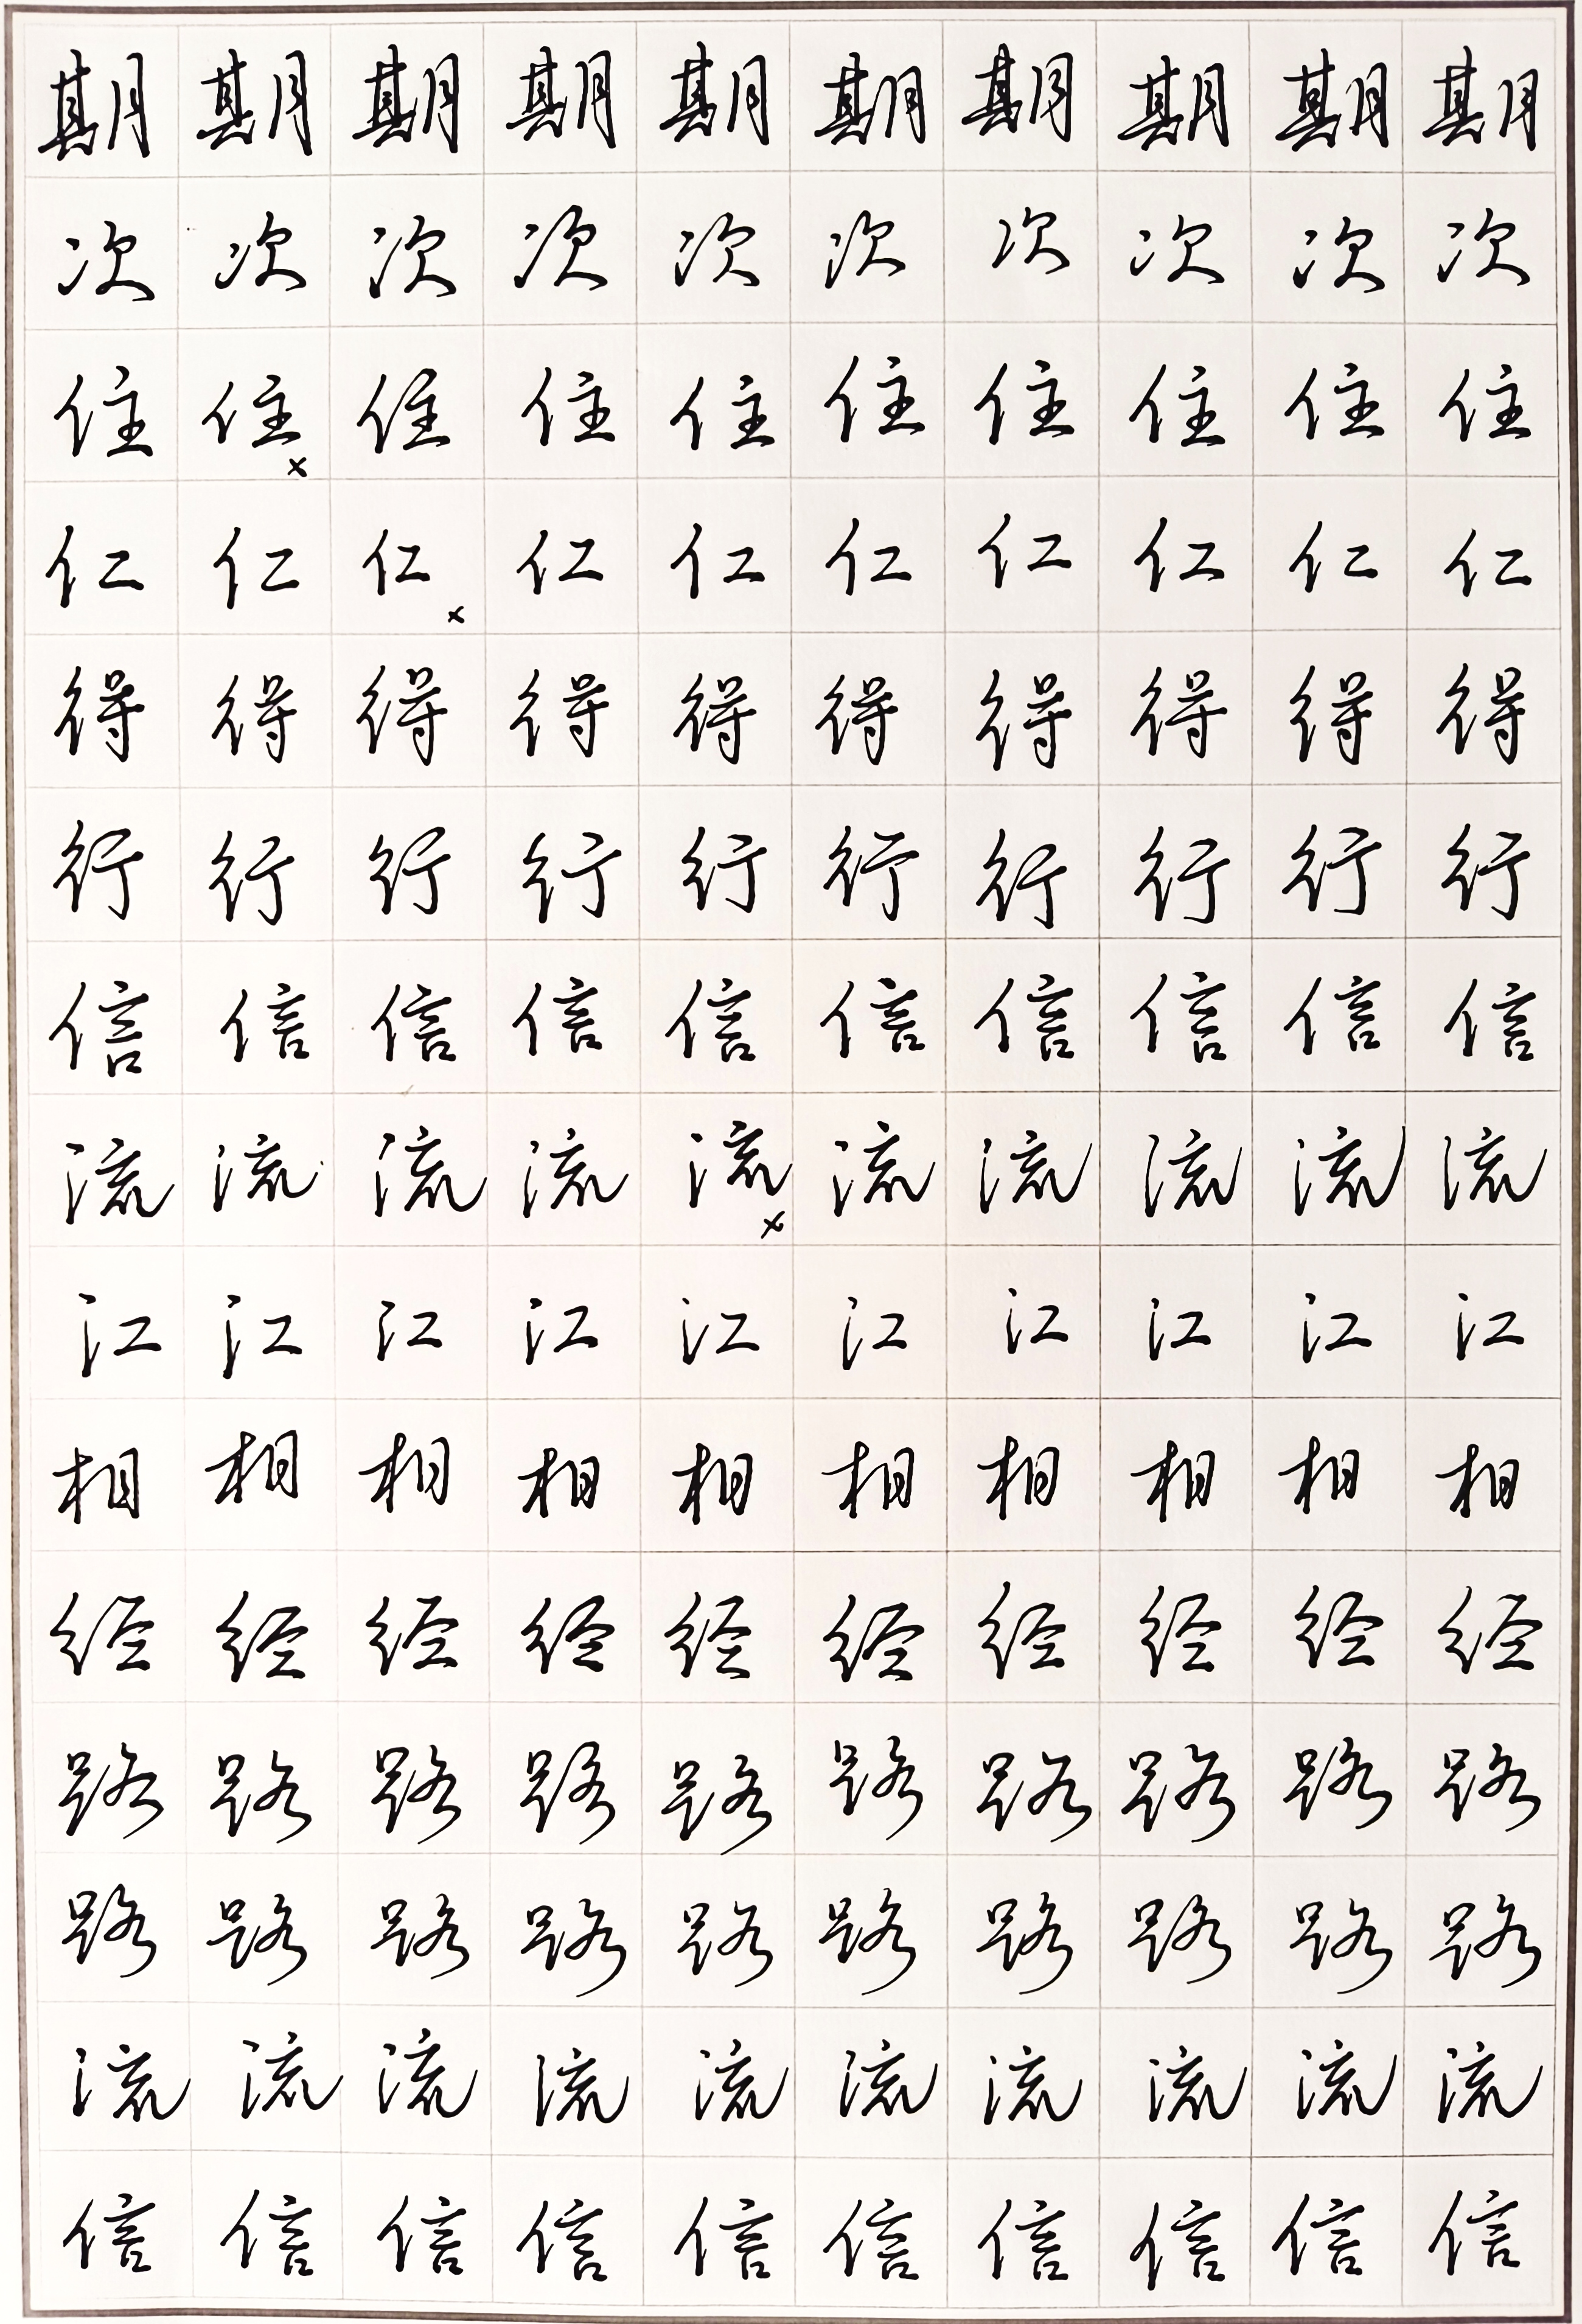 期期期期期期期期期期
次次次次次次次次次次
住住住住住住住住住住
仁仁仁仁仁仁仁仁仁仁
得得得得得得得得得得
行行行行行行行行行行
信信信信信信信信信信
流流流流流流流流流流
江江江江江江江江江江
相相相相相相相相相相
经经经经经经经经经经
路路路路路路路路路路
路路路路路路路路路路
流流流流流流流流流流
信信信信信信信信信信